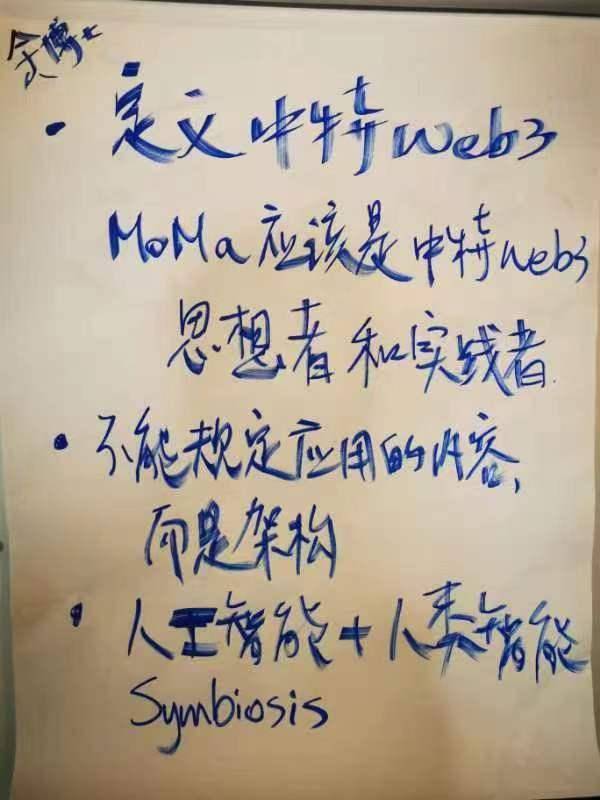 余博士
• 定义中特Web3
MoMa应该是中特web3
思想者和实践者.
• 不能规定应用的内容,
而是架构
• 人工智能+人类智能
Symbiosis